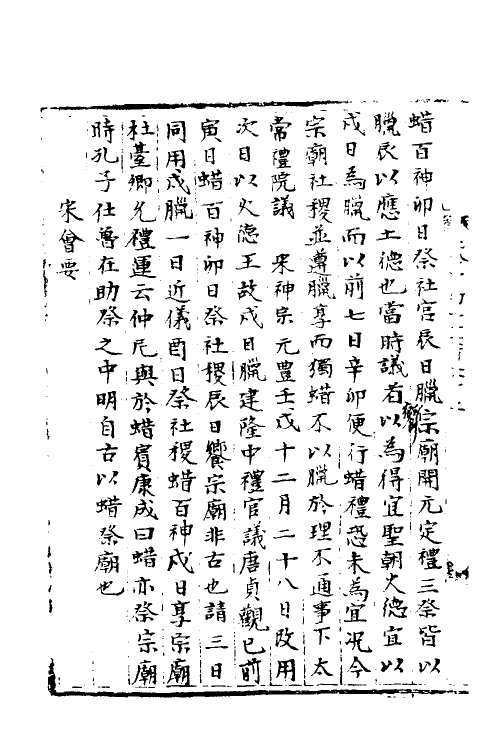 蜡百神卯日祭社官辰日臘宗廟開元定禮三祭皆以
臘辰以應土德也當時議者以為得宜聖朝火德宜以
戌日為臘而以前七日辛卯便行蜡禮恐未為宜况今
宗廟社稷並遵臘享而獨蜡不以臘於理不通事下太
常禮院議 宋神宗元豊壬戌十二月二十八日改用
次日以火德王故戌日臘建隆中禮官議唐貞觀已前
寅日蜡百神卯日祭社稷辰日饗宗廟非古也請三日
同用戌臘一日近儀酉日祭社稷蜡百神戌日享宗廟
杜臺卿允禮運云仲尼與於蜡賓康成曰蜡亦祭宗廟
時孔子仕魯在助祭之中明自古以蜡祭廟也
宋會要